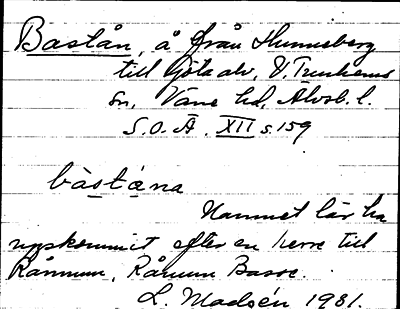 Bastån, å från Hunneberg
till Göta älv, V. Tunhems
sn, Väne hd, Älvsb. l.
S.O.Ä. XII s. 159
bàstǝ́na
Namnet lär ha
uppkommit efter en herre till
Rånnum, Rånum Basse.
L. Madsén 1931.